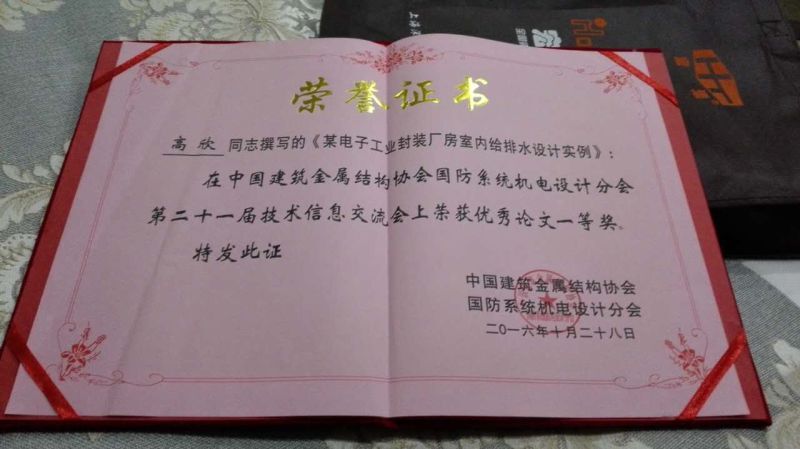 荣誉证书
高欣 同志撰写的《某电子工业封装厂房室内给排水设计实例》：
在中国建筑金属结构协会国防系统机电设计分会
第二十一届技术信息交流会上荣获优秀论文一等奖。
特发此证
中国建筑金属结构协会
国防系统机电设计分会
二〇一六年十月二十八日